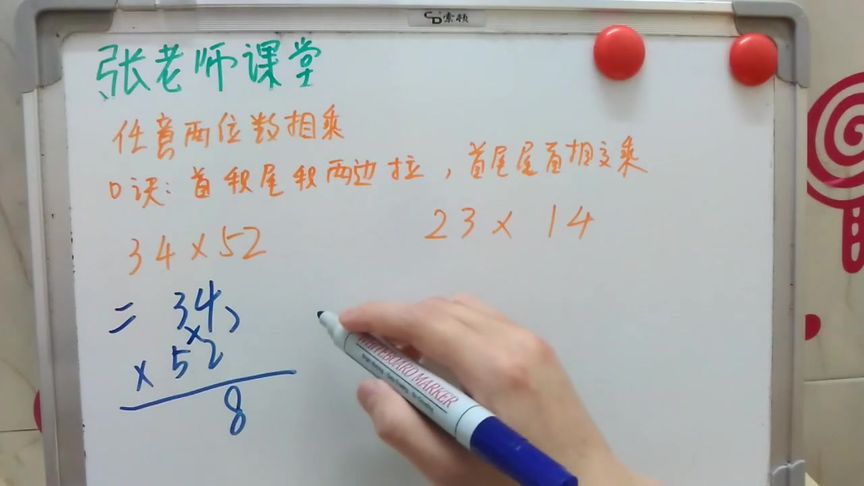 索顿
张老师课堂
任意两位数相乘
口诀:首积尾积两边拉,首尾尾首相交乘
34×52
23×14
= 34
× 52
8
WHITEBOARD MARKER